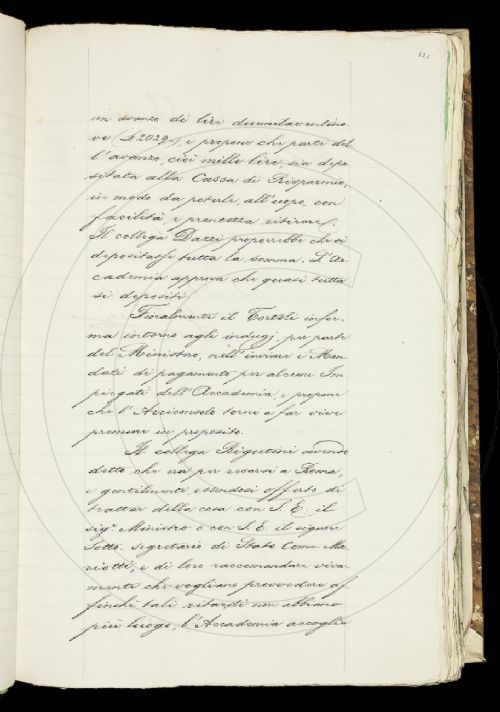 521
un avanzo di lire duemilaventino-
ve (£ 2029-), e propone che parte del-
l'avanzo, cioè mille lire, sia depo-
sitata alla Cassa di Risparmio,
in modo da poterle all'uopo, con
facilità e prontezza ritirare.
Il collega Dazzi proporrebbe che si
depositasse tutta la somma. L'Ac-
cademia approva che quasi tutta
si depositi.
Finalmente il Tortoli infor-
ma intorno agli indugj, per parte
del Ministero, nell'inviare i Man-
dati di pagamento per alcuni Im-
piegati dell'Accademia, e propone
che l'Arciconsolo torni a far vive
premure in proposito.
Il collega Rigutini avendo
detto che era per recarsi a Roma,
e gentilmente essendosi offerto di
trattar della cosa con S. E. il
sigr. Ministro e con S. E. il signor
Sotto-segretario di Stato Comm. Ma-
riotti, e di loro raccomandare viva-
mente che vogliano provvedere af-
finchè tali ritardi non abbiano
più luogo, l'Accademia accoglie